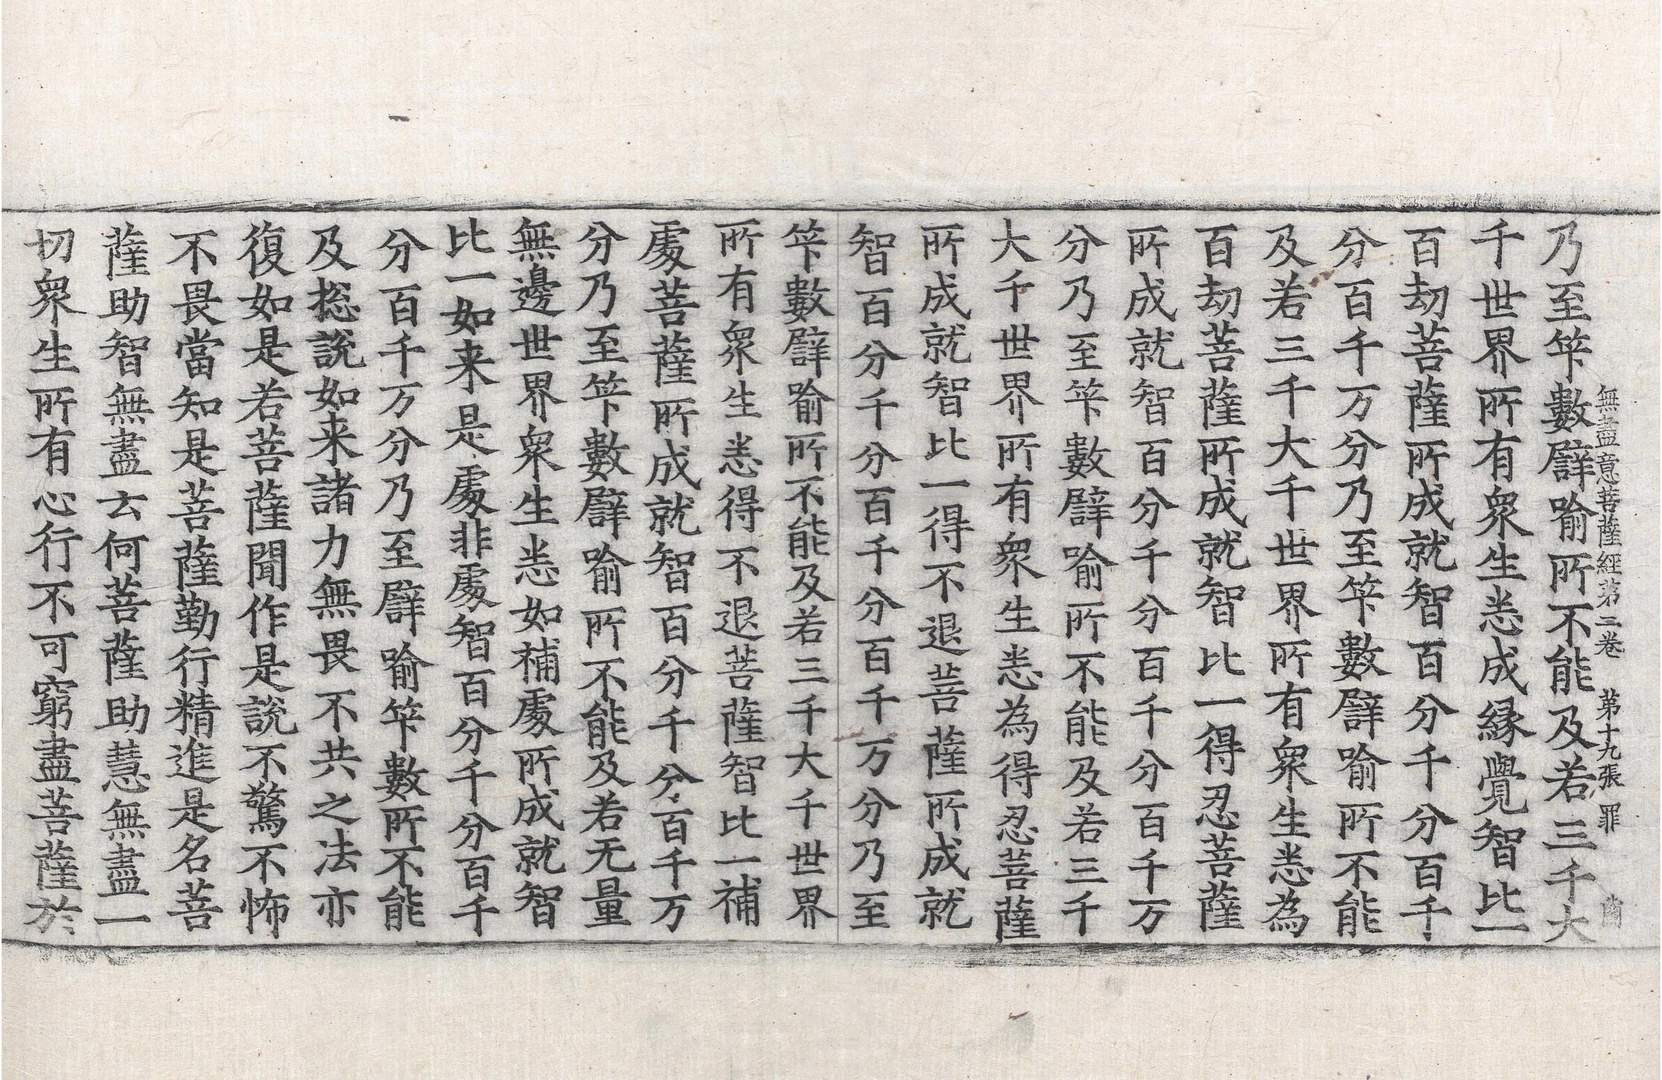 無盡意菩薩經第二卷 第十九張 罪
乃至笇數譬喻所不能及若三千大
千世界所有衆生悉成緣覺智比一
百劫菩薩所成就智百分千分百千
分百千万分乃至笇數譬喻所不能
及若三千大千世界所有衆生悉為
百劫菩薩所成就智比一得忍菩薩
所成就智百分千分百千分百千万
分乃至笇數譬喻所不能及若三千
大千世界所有衆生悉為得忍菩薩
所成就智比一得不退菩薩所成就
智百分千分百千分百千万分乃至
笇數譬喻所不能及若三千大千世界
所有衆生悉得不退菩薩智比一補
處菩薩所成就智百分千分百千万
分乃至笇數譬喻所不能及若无量
無邊世界衆生悉如補處所成就智
比一如来是處非處智百分千分百千
分百千万分乃至譬喻笇數所不能
及揔說如来諸力無畏不共之法亦
復如是若菩薩聞作是說不驚不怖
不畏當知是菩薩勤行精進是名菩
薩助智無盡云何菩薩助慧無盡一
切衆生所有心行不可窮盡菩薩於